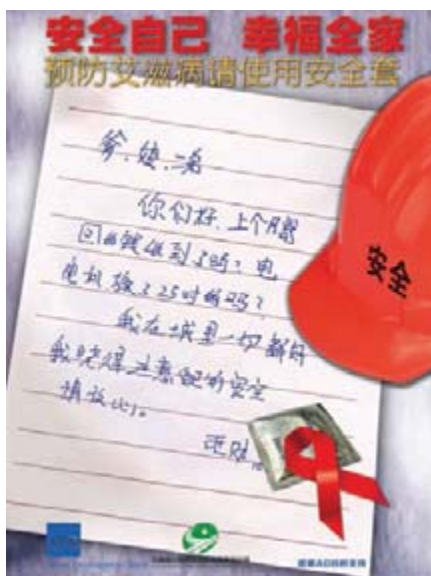 安全自己 幸福全家
预防艾滋病请使用安全套
爹、娘、二弟
你们好，上个月邮
回的钱收到了吗？电
机换了25吋的吗？
我在城里一切都好
我晓得注意自己的安全
请放心。
安全